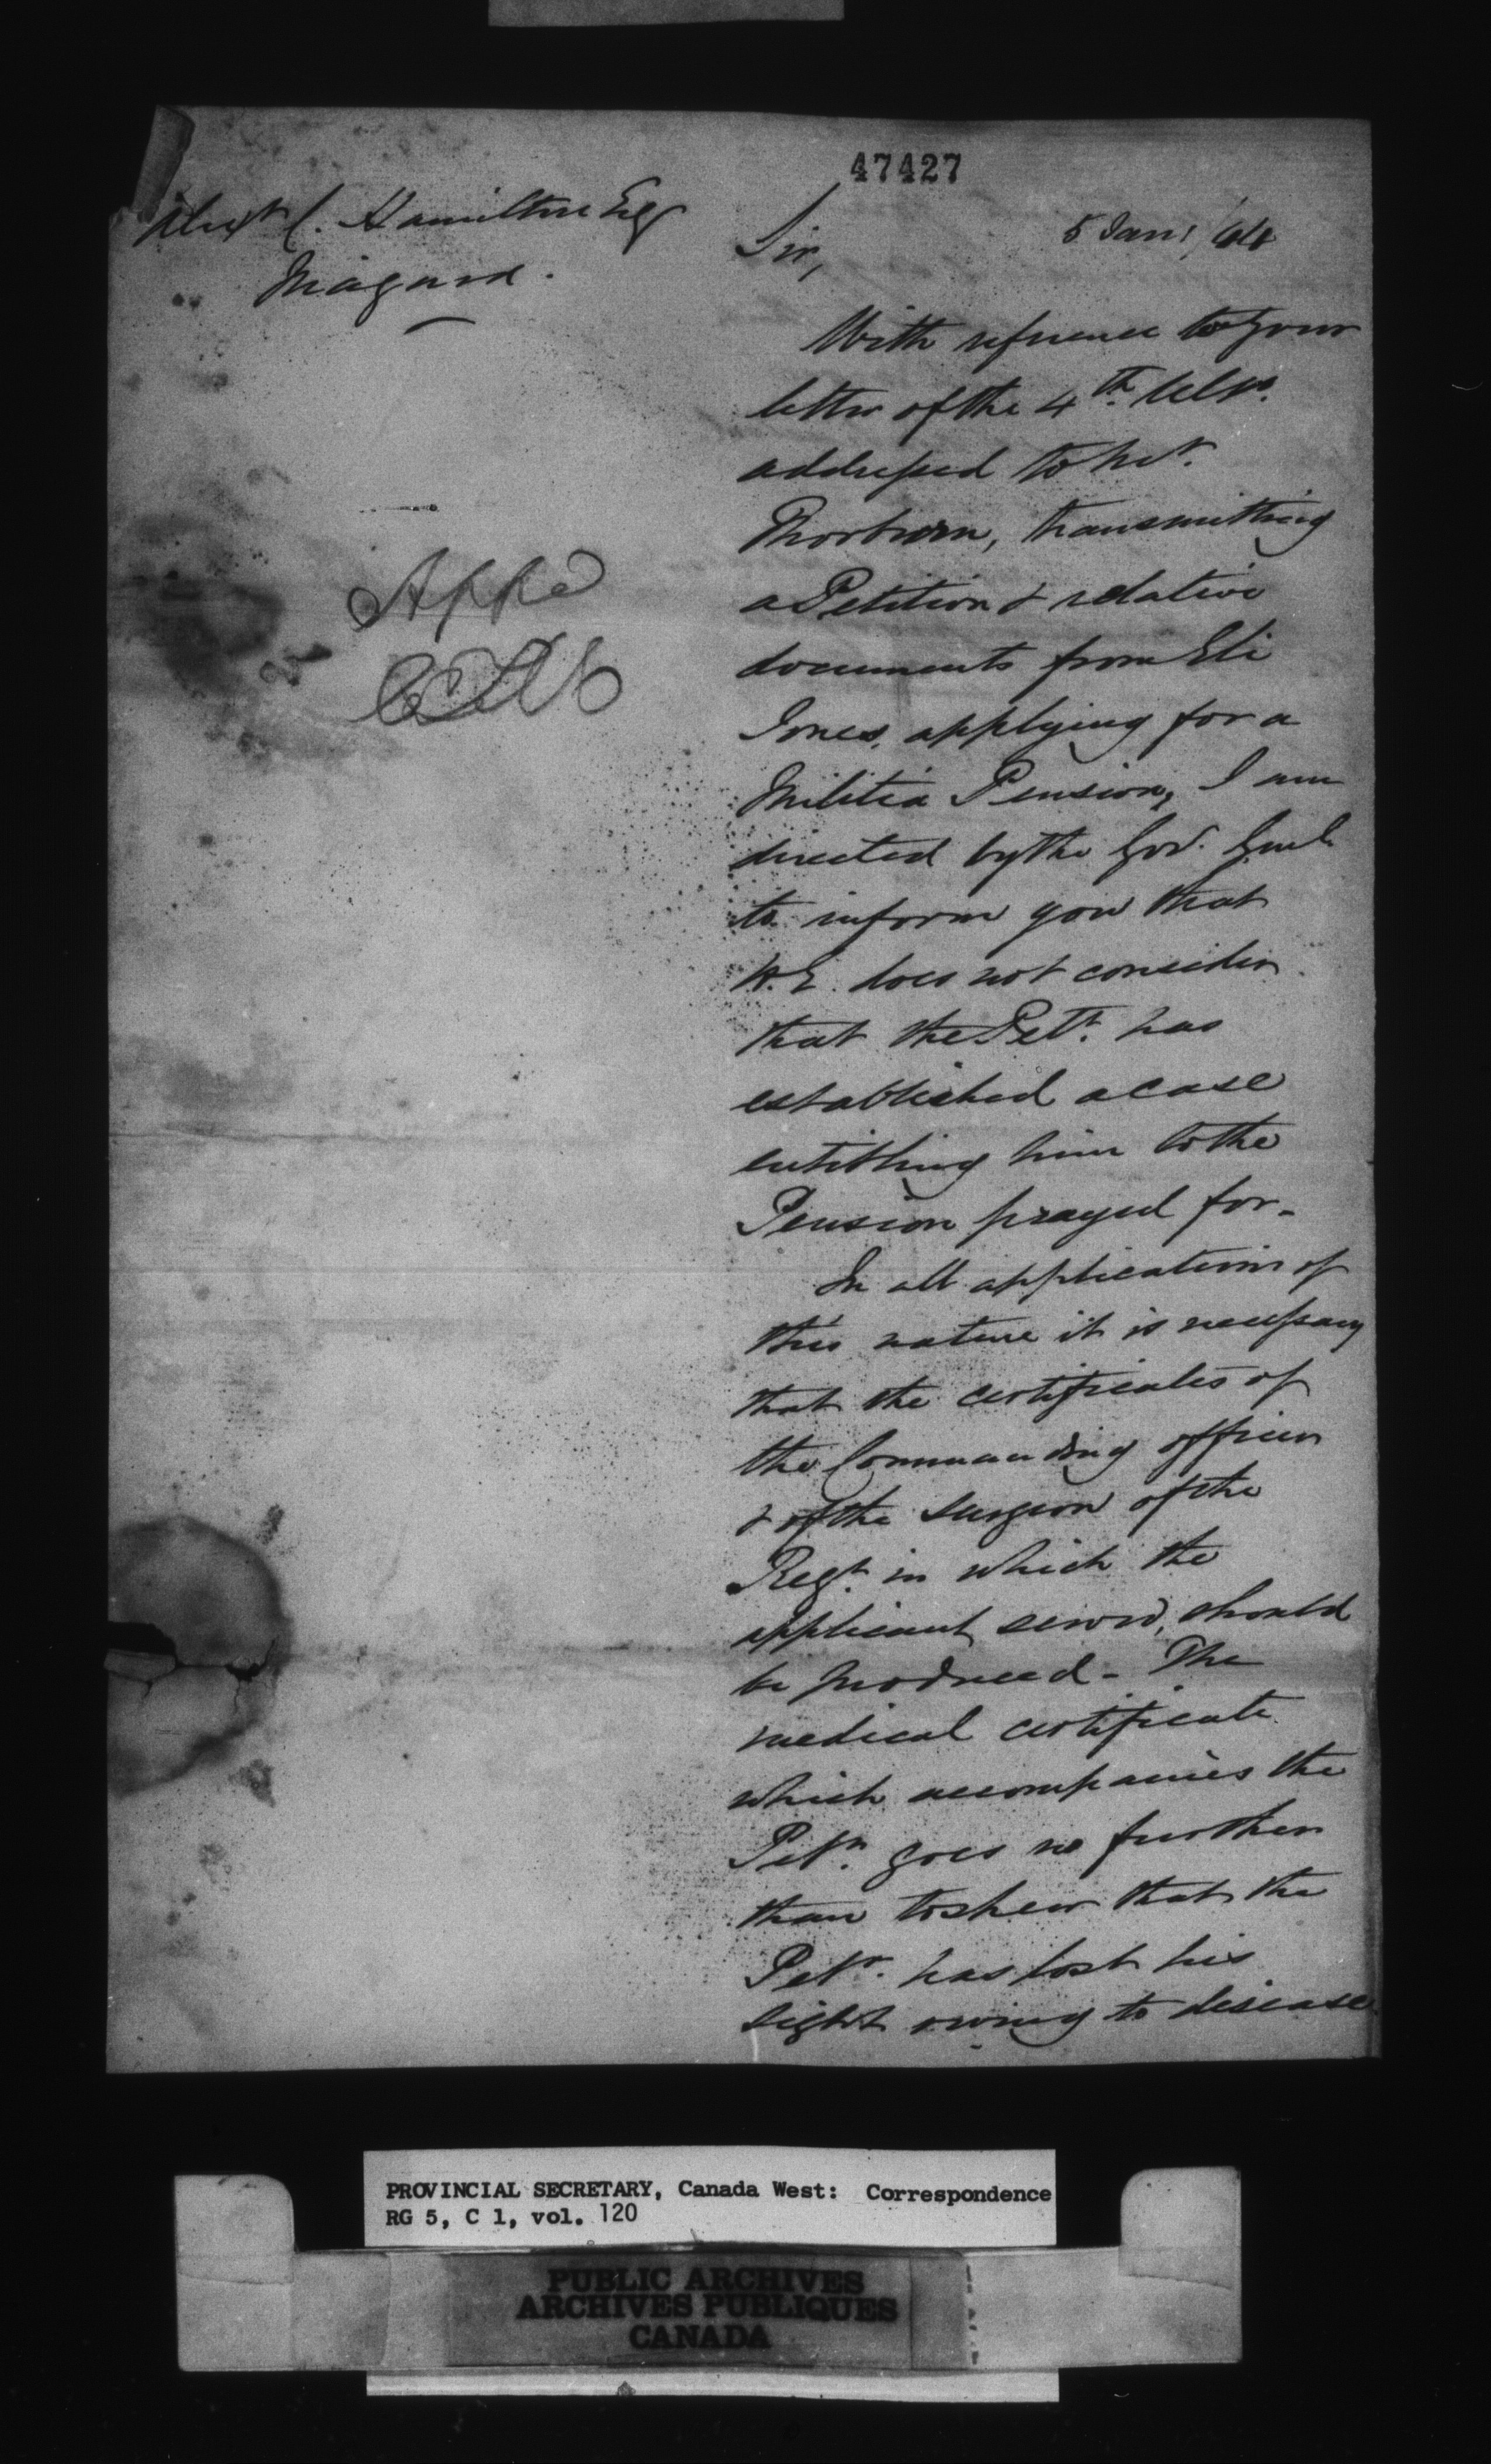 47427
Alexr C. Hamilton Esq
Niagara.
5 Jany /44
Sir,
With reference to your
letter of the 4th Ulto.
addressed to Mr.
Thorburn, transmitting
a Petition & relative
documents from Eli
Jones, applying for a
Militia Pension, I am
directed by the Gov. Genl.
to inform you that
H.E. does not consider
that the Petr. has
established a case
entitling him to the
Pension prayed for-
In all applications of
this nature it is necessary
that the certificates of
the Commanding officer
& of the Surgeon of the
Regt. in which the
applicant served, should
be produced - The
medical certificate
which accompanies the
Petn. goes no further
than to shew that the
Petr. has lost his
sight owing to disease
Appd
PROVINCIAL SECRETARY, Canada West: Correspondence
RG 5, C 1, vol. 120
PUBLIC ARCHIVES
ARCHIVES PUBLIQUES
CANADA